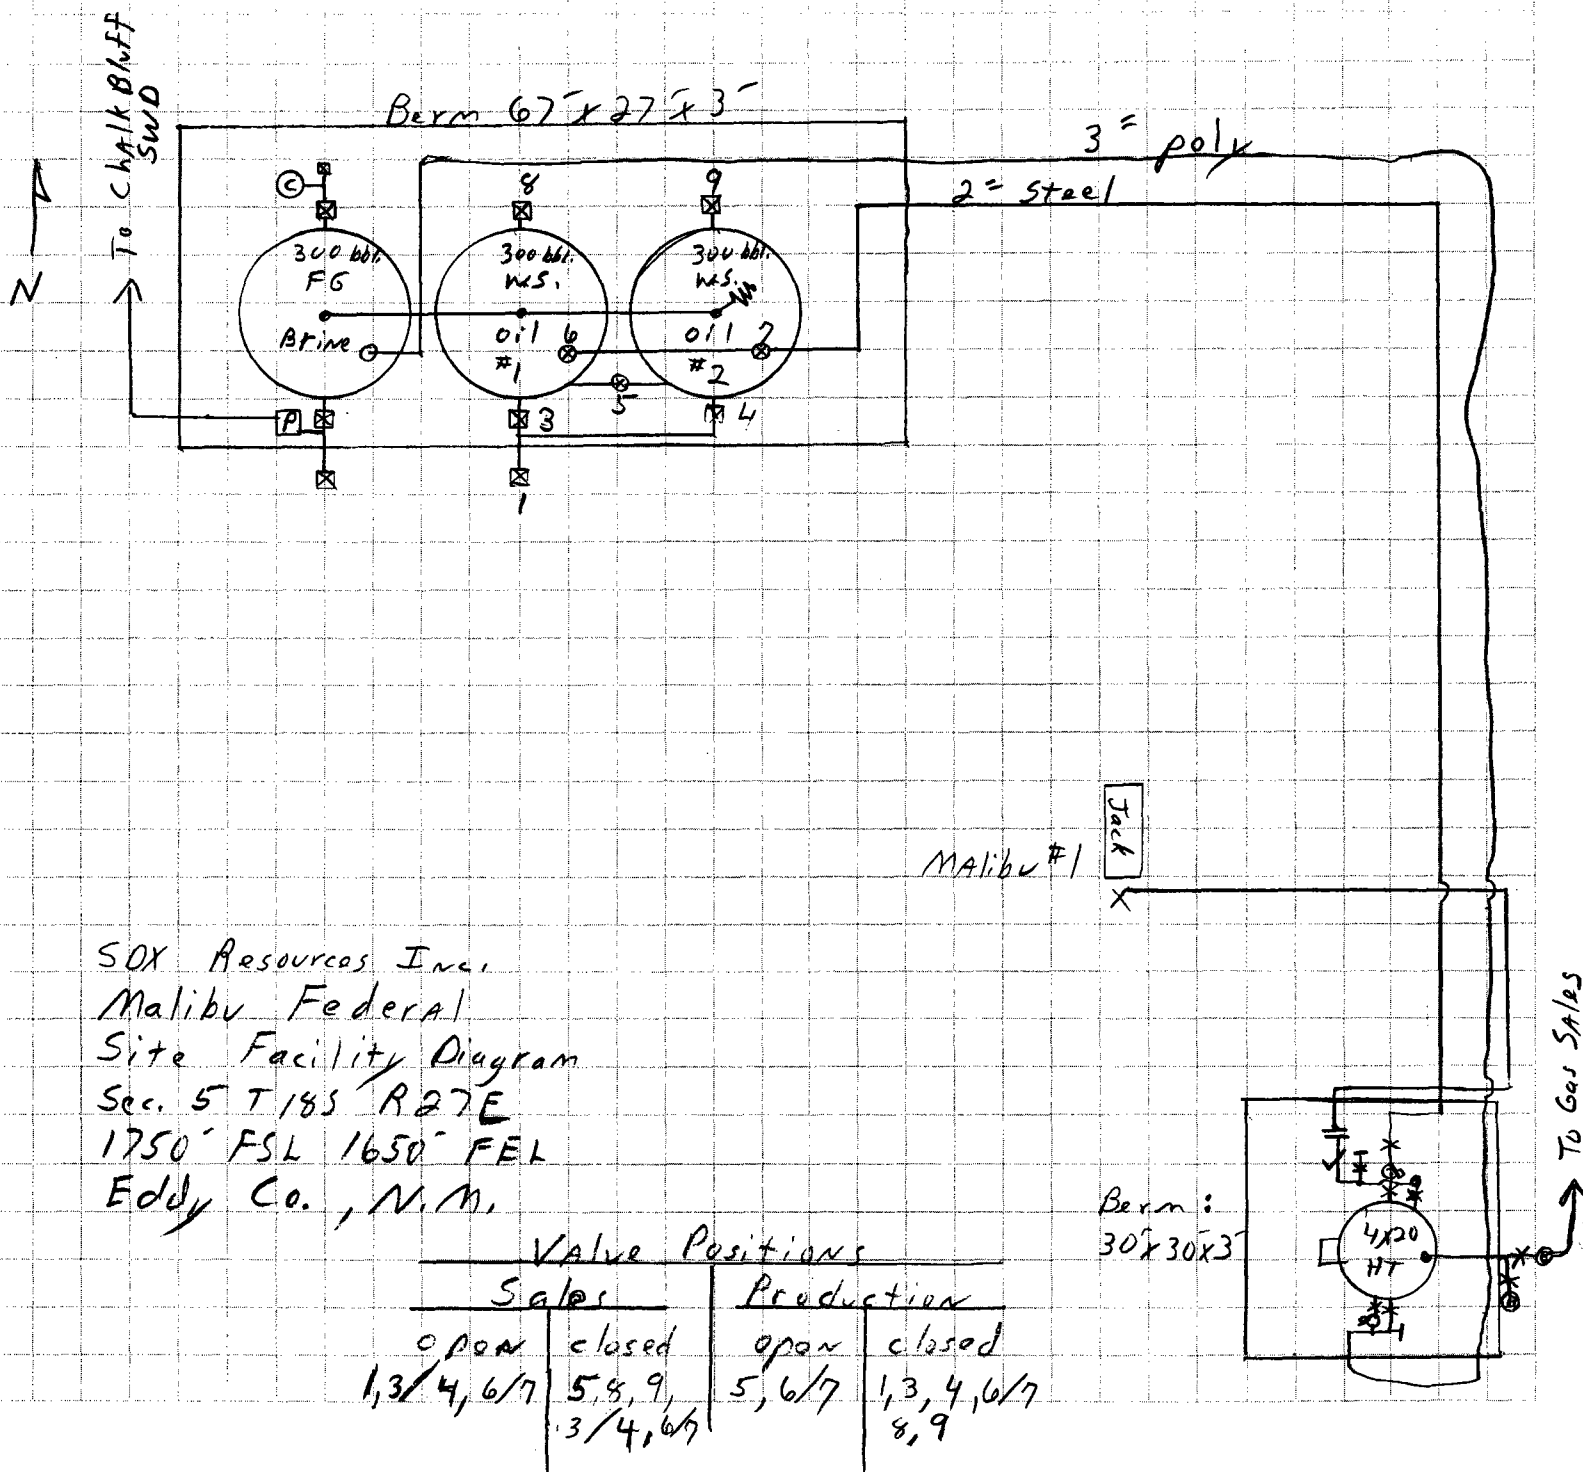 To Chalk Bluff
SWD
N
Berm 67' x 27' x 3'
3" poly
2" steel
C
8
9
300 bbl.
FG
Brine
300 bbl.
W.S.
oil
#1
6
300 bbl.
W.S.
oil
#2
7
5
P
3
4
1
Jack
Malibu #1
X
SDX Resources Inc.
Malibu Federal
Site Facility Diagram
Sec. 5 T18S R27E
1750' FSL 1650' FEL
Eddy Co., N.M.
Berm:
30'x30'x3'
4x20
HT
To Gas Sales
Valve Positions
Sales
Production
open
closed
open
closed
1,3/4, 6/7
5,8,9,
5, 6/7
1,3,4,6/7
3/4, 6/7
8,9